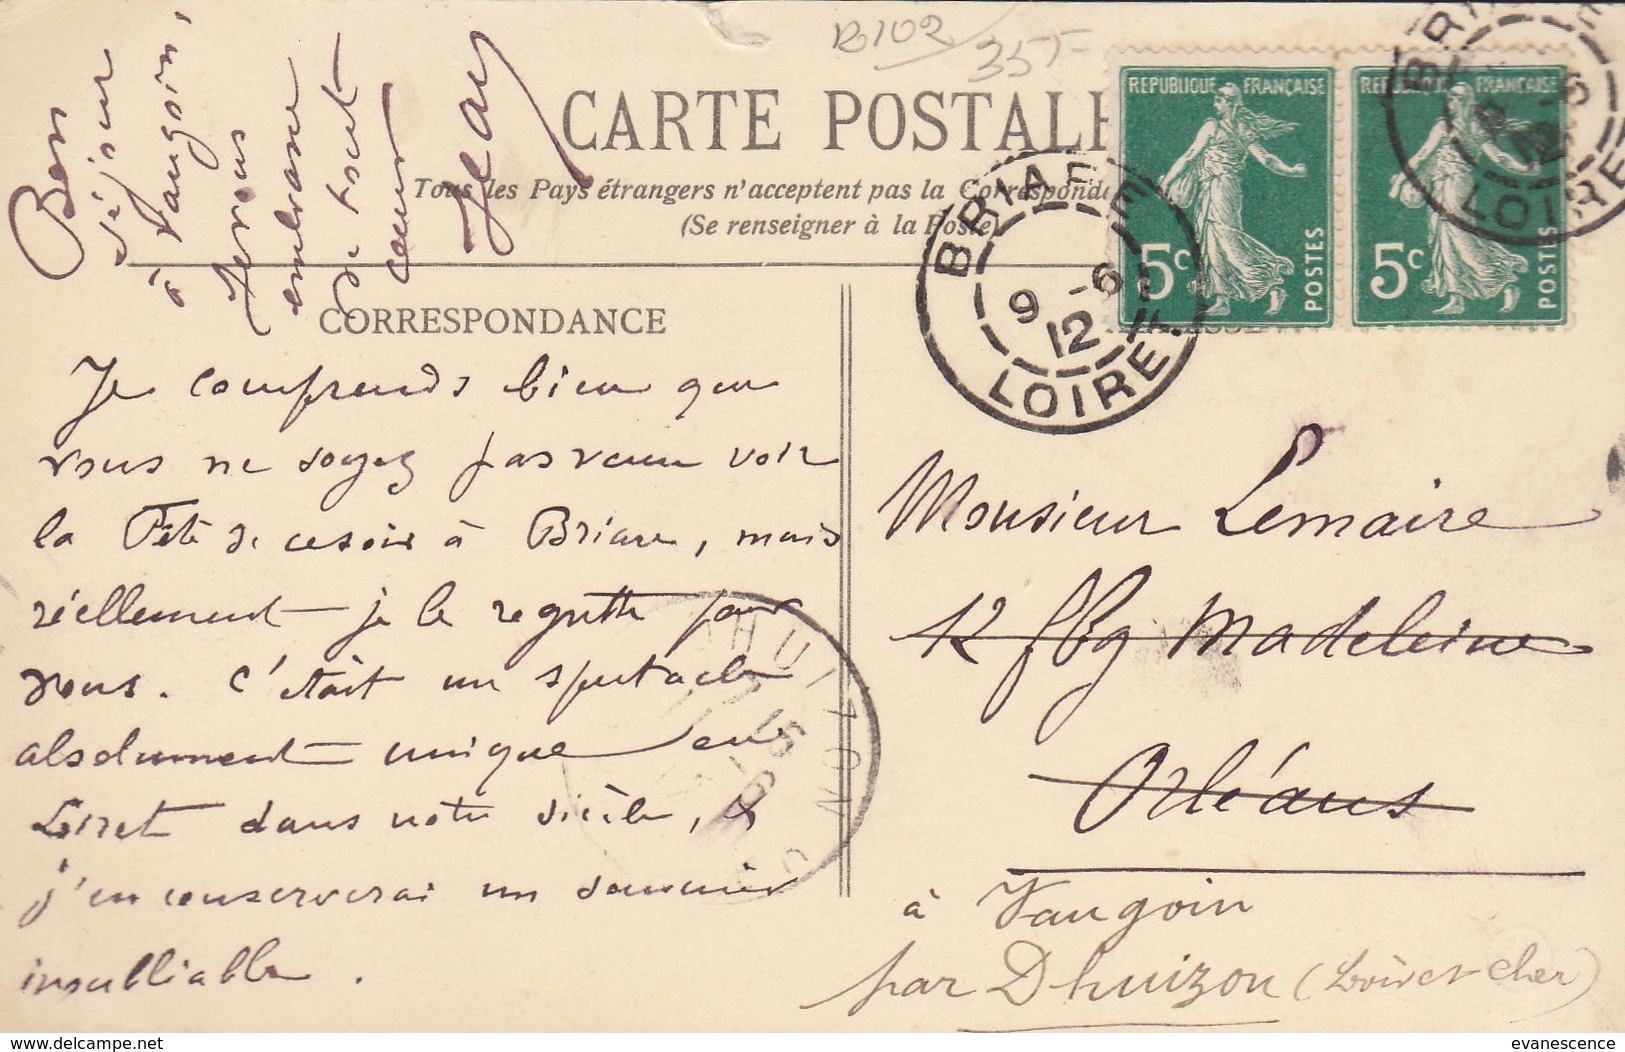 B102
35F-
CARTE POSTALE
Tous les Pays étrangers n'acceptent pas la Correspond
(Se renseigner à la Poste)
REPUBLIQUE FRANÇAISE
5c
POSTES
REPUBLIQUE FRANÇAISE
5c
POSTES
BRIARE
9 -6
12
LOIRET
BRIARE
9 -6
12
LOIRET
CORRESPONDANCE
Je comprends bien que
vous ne soyez pas venu voir
la Fête de ce soir à Briare, mais
réellement je le regrette pour
vous. C'était un spectacle
absolument unique en
Loiret dans notre siècle, &
j'en conserverai un souvenir
inoubliable.
Bon
séjour
à Vaugoin,
Je vous
embrasse
de tout
cœur
Jean
Monsieur Lemaire
12 fbg Madeleine
Orléans
à Vaugoin
par Dhuizon (Loir et Cher)
DHUIZON
evanescence